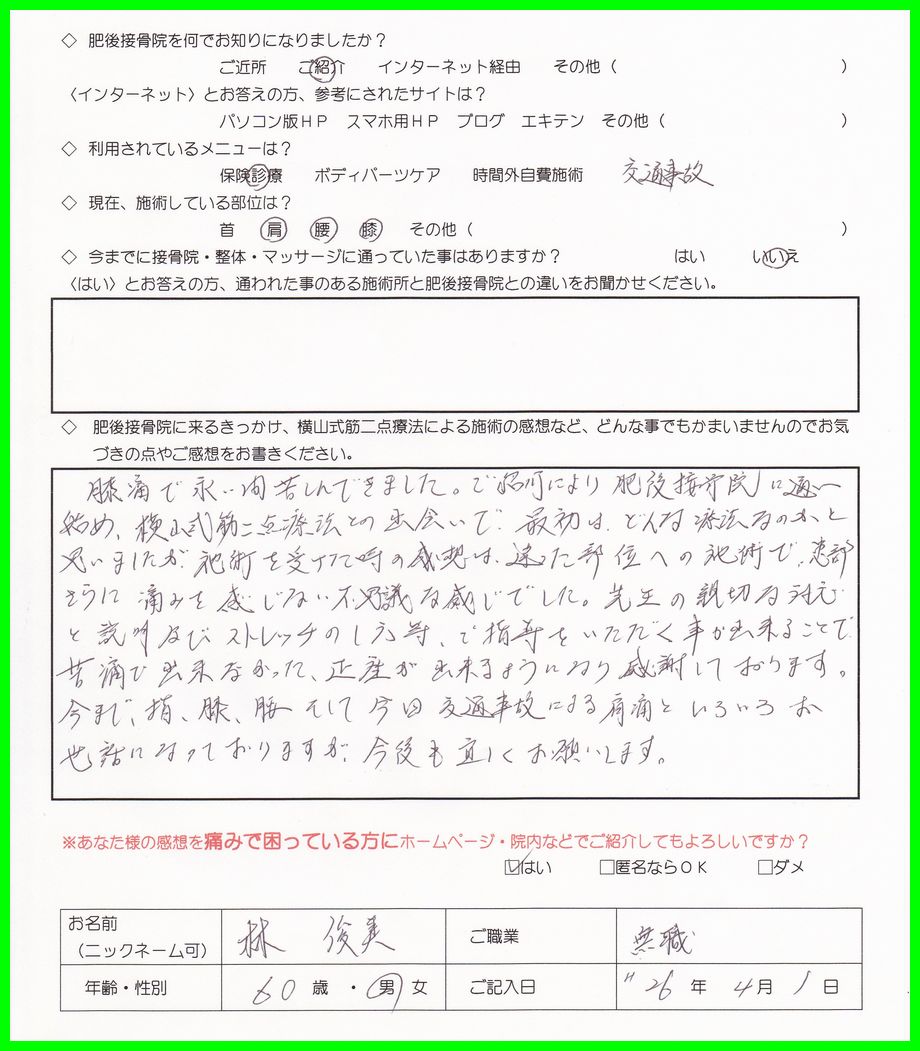 ◇ 肥後接骨院を何でお知りになりましたか？
ご近所 ご紹介 インターネット経由 その他（ ）
〈インターネット〉とお答えの方、参考にされたサイトは？
パソコン版ＨＰ スマホ用ＨＰ ブログ エキテン その他（ ）
◇ 利用されているメニューは？
保険診療 ボディパーツケア 時間外自費施術 交通事故
◇ 現在、施術している部位は？
首 肩 腰 膝 その他（ ）
◇ 今までに接骨院・整体・マッサージに通っていた事はありますか？ はい いいえ
〈はい〉とお答えの方、通われた事のある施術所と肥後接骨院との違いをお聞かせください。
◇ 肥後接骨院に来るきっかけ、横山式筋二点療法による施術の感想など、どんな事でもかまいませんのでお気
づきの点やご感想をお書きください。
膝痛で永い間苦しんできました。ご紹介により肥後接骨院に通い
始め、横山式筋二点療法との出会いで、最初は、どんな療法なのかと
思いましたが、施術を受けた時の感想は、違った部位への施術で、患部
さらに痛みを感じない不思議な感じでした。先生の親切な対応
と説明及びストレッチのし方等、ご指導をいただく事が出来ることで
苦痛で出来なかった、正座が出来るようになり感謝しております。
今まで、指、膝、腰そして今回交通事故による肩痛といろいろお
世話になっておりますが、今後も宜しくお願いします。
※あなた様の感想を痛みで困っている方にホームページ・院内などでご紹介してもよろしいですか？
☑はい □匿名ならＯＫ □ダメ
お名前 林 俊美 ご職業 無職
（ニックネーム可）
年齢・性別 60 歳 ・ 男 女 ご記入日 H 26 年 4 月 1 日